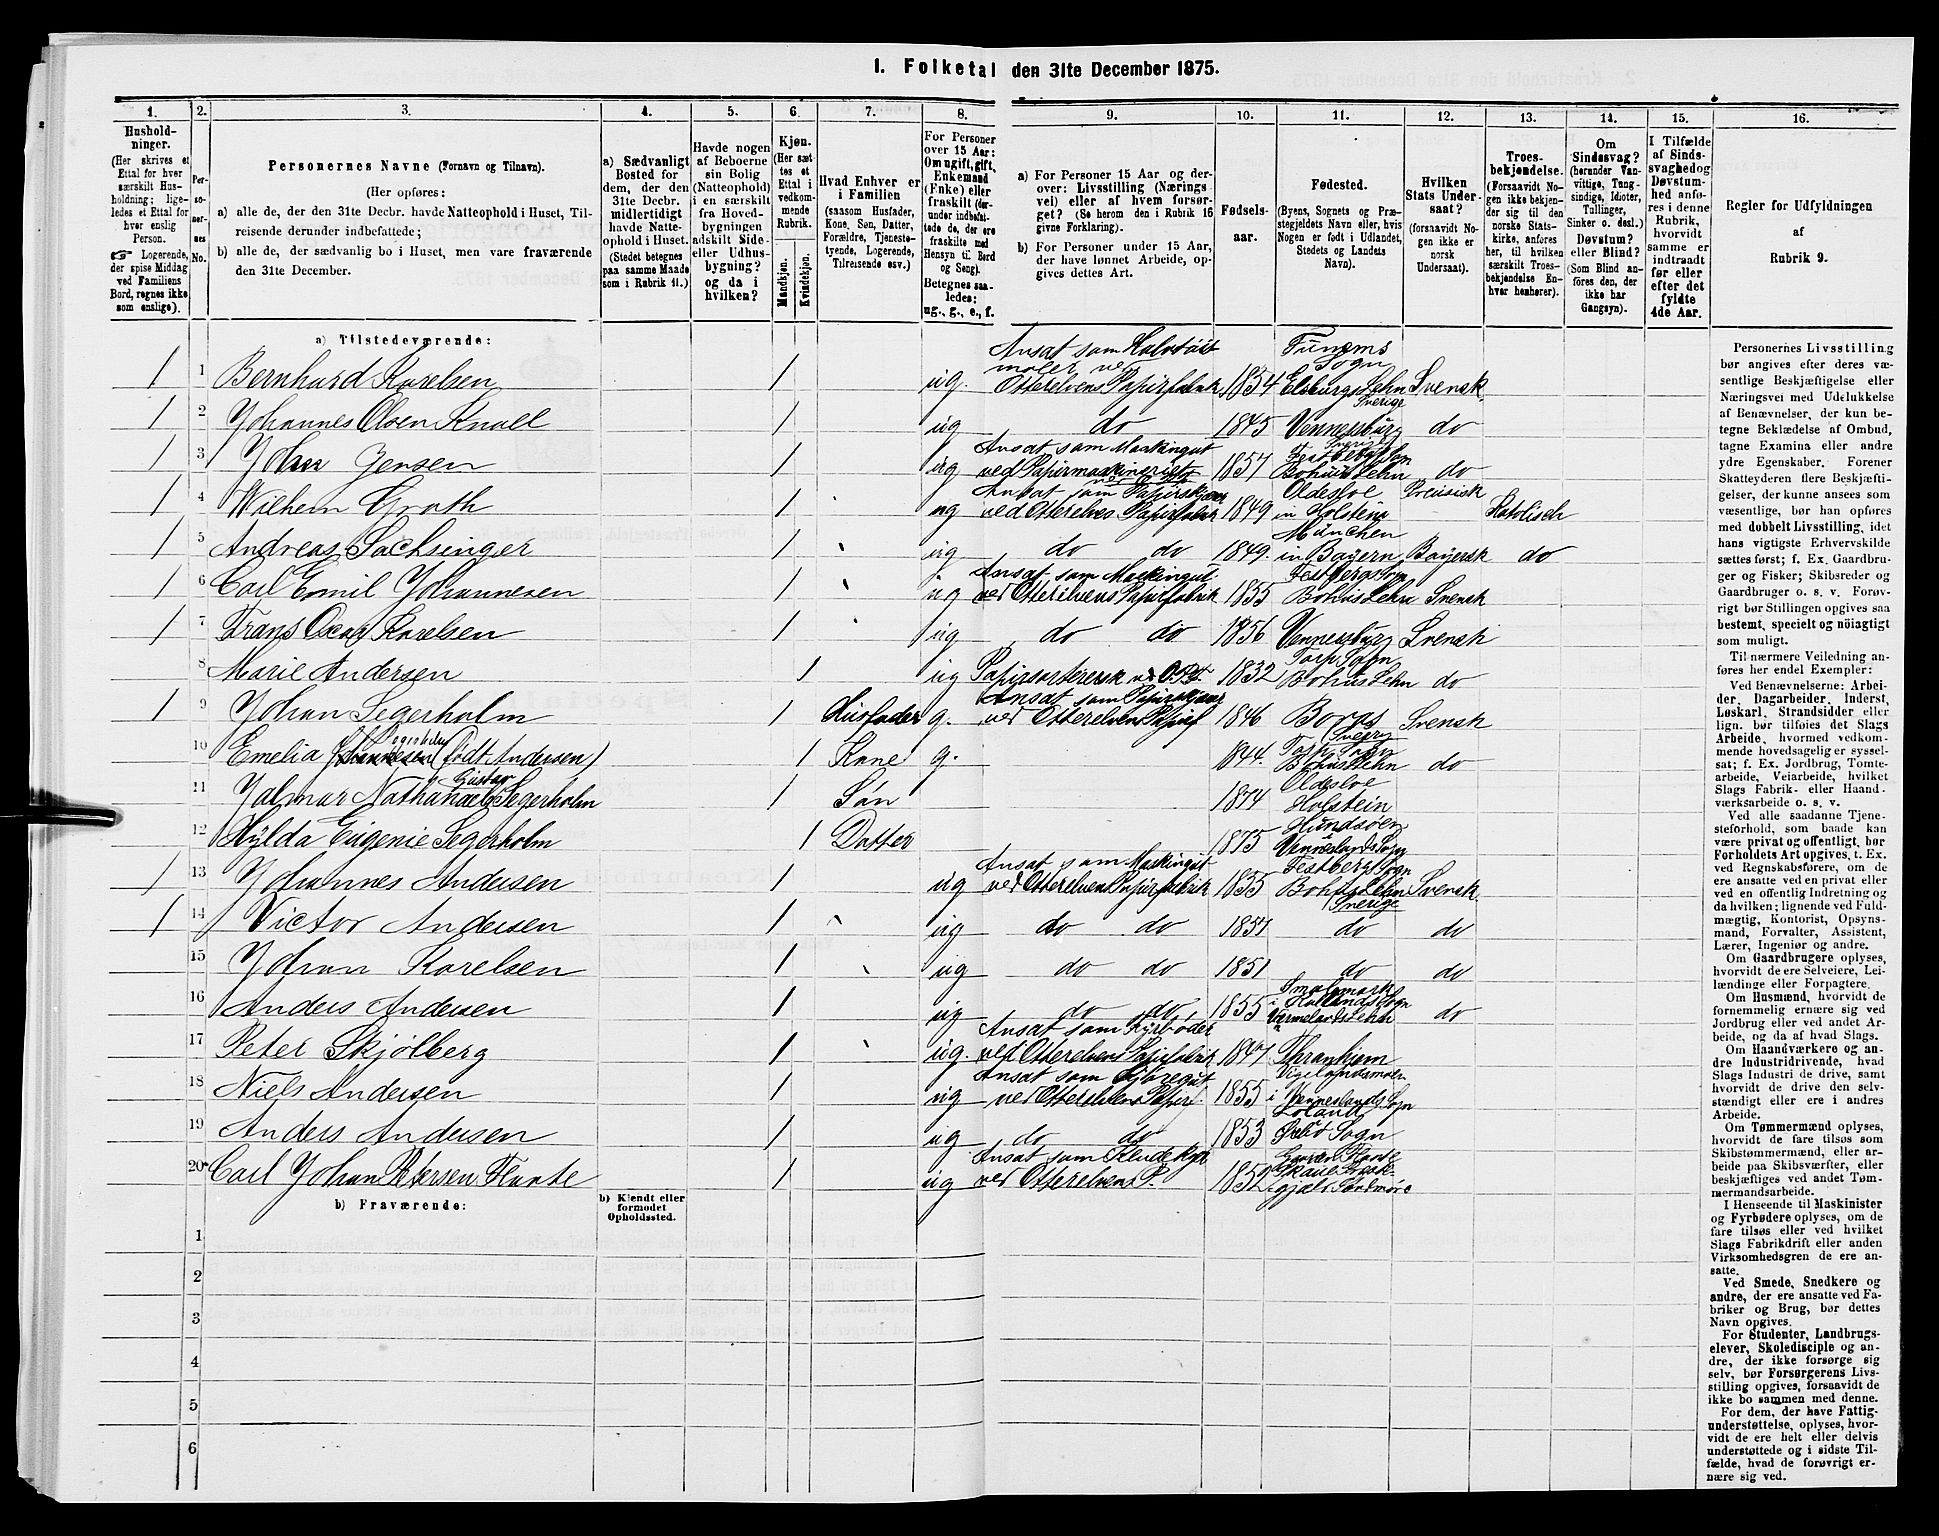 1. Folketal den 31te December 1875.
1. 2. 3. 4. 5. 6. 7. 8. 9. 10. 11. 12. 13. 14. 15. 16.
Hushold-
ninger.
(Her skrives et
Ettal for hver
særskilt Hus-
holdning; lige-
ledes et Ettal for
hver enslig
Person.
☞ Logerende,
der spise Middag
ved Familiens
Bord, regnes ikke
som enslige).
Per-
so-
ner-
nes
No.
Personernes Navne (Fornavn og Tilnavn).
(Her opføres:
a) alle de, der den 31te Decbr. havde Natteophold i Huset, Til-
reisende derunder indbefattede;
b) alle de, der sædvanlig bo i Huset, men vare fraværende
den 31te December.
a) Sædvanligt
Bosted for
dem, der den
31te Decbr.
midlertidigt
havde Natte-
ophold i Huset.
(Stedet betegnes
paa samme Maade
som i Rubrik 11.)
Havde nogen
af Beboerne
sin Bolig
(Natteophold)
i en særskilt
fra Hoved-
bygningen
adskilt Side-
eller Udhus-
bygning?
og da i
hvilken?
Kjøn.
(Her sæt-
tes et
Ettal i
vedkom-
mende
Rubrik.
Mandkjøn.
Kvindekjøn.
Hvad Enhver er
i Familien
(saasom Husfader,
Kone, Søn, Datter,
Forældre, Tjeneste-
tyende, Logerende,
Tilreisende osv.)
For Personer
over 15 Aar:
Om ugift, gift,
Enkemand
(Enke) eller
fraskilt (der-
under indbefat-
tede de, der ere
fraskilte med
Hensyn til Bord
og Seng).
Betegnes saa-
ledes:
ug., g., e., f.
a) For Personer 15 Aar og der-
over: Livsstilling (Nærings-
vei) eller af hvem forsør-
get? (Se herom den i Rubrik 16
givne Forklaring).
b) For Personer under 15 Aar,
der have lønnet Arbeide, op-
gives dettes Art.
Fødsels-
aar.
Fødested.
(Byens, Sognets og Præ-
stegjeldets Navn eller, hvis
Nogen er født i Udlandet,
Stedets og Landets
Navn).
Hvilken
Stats Under-
saat?
(forsaavidt No-
gen ikke er
norsk
Undersaat).
Troes-
bekjendelse.
(Forsaavidt No-
gen ikke bekjen-
der sig til den
norske Stats-
kirke, anføres
her, til hvilken
særskilt Troes-
bekjendelse En-
hver henhører).
Om
Sindssvag?
(herunder Van-
vittige, Tung-
sindige, Idioter,
Tullinger,
Sinker o. desl.)
Døvstum?
eller Blind?
(Som Blind an-
føres den, der
ikke har
Gangsyn).
I Tilfælde
af Sinds-
svaghed og
Døvstum-
hed anfø-
res i denne
Rubrik,
hvorvidt
samme er
indtraadt
før eller
efter det
fyldte
4de Aar.
Regler for Udfyldningen
af
Rubrik 9.
a) Tilstedeværende:
1 1 Bernhard Karelsen 1 ug. Ansat som ved Otterelvens Papirfabrik 1854 Sogn Elsburgs Lehn Sverige Svensk
1 2 Johannes Olsen Knall 1 ug do 1845 Vennersburg Sverige do
1 3 Johan Jensen 1 ug Ansat som Maskingut ved 1857 Bohus Lehn do
1 4 Wilhem Groth 1 ug Ansat som Papirskjærer ved Otterelvens Papirfabrik 1849 Oldesloe in Holstena Preusisk Katolisch
1 5 Andreas Sachsinger 1 ug do do 1849. München in Bayern Bayersk do
1 6 Carl Emil Johannesen 1 ug Ansat som Maskingut ved Otterelvens Papirfabrik 1855 Festberg Sogn Bohus Lehn Svensk
1 7 Frans Oscar Karelsen 1 ug do do 1856 Vennersburg Svensk
8 Marie Andersen 1 ug Papirsortererske 1832 Tarp Sogn Bohus Lehn do
1 9 Johan Segerholm 1 Husfader g. Ansat som Papirskjærer ved Otterelvens Papirf 1846 Boras Sverig Svensk
10 Emelia (født Andersen) 1 Kone g. 1844. Tarp Sogn Bohus Lehn do
11 Jalmar Nathanael Gustav Segerholm 1 Søn 1874 Oldesloe Holstein
12 Hylda Eugenie Segerholm 1 Datter 1875 Hundsøen Venneslands Sogn
1 13 Johannes Andersen 1 ug Ansat som Maskingut ved Otterelvens Papirfabrik 1855 Festberg Sogn Bohus Lehn Sverige Svensk
1 14 Victor Andersen 1 ug do do 1857 do do
15 Johan Karelsen 1 ug do do 1851 do do
16 Anders Andersen 1 ug do do 1855 Smalemark i Hallands Sogn Vermelands Lehn do
17 Peter Skjølberg 1 ug. Ansat som Fyrbøder ved Otterelvens Papirfabrik 1847 Thranhjem
18 Niels Andersen 1 ug Ansat som ved Otterelvens Papirf. 1855 Vigelandsmoen i Venneslands Sogn
19 Anders Andersen 1 ug do do 1853 Loland Øvebø Sogn
20 Carl Johan Petersen Flaate 1 ug Ansat som ved Otterelvens P. 1852
b) Fraværende:
b) Kjendt eller
formodet
Opholdssted.
1
2
3
4
5
6
Personernes Livsstilling
bør angives efter deres væ-
sentlige Beskjæftigelse eller
Næringsvei med Udelukkelse
af Benævnelser, der kun be-
tegne Beklædelse af Ombud,
tagne Examina eller andre
ydre Egenskaber. Forener
Skatteyderen flere Beskjæfti-
gelser, der kunne ansees som
væsentlige, bør han opføres
med dobbelt Livsstilling, idet
hans vigtigste Erhvervskilde
sættes først; f. Ex. Gaardbru-
ger og Fisker; Skibsreder og
Gaardbruger o. s. v. Forøv-
rigt bør Stillingen opgives saa
bestemt, specielt og nøiagtigt
som muligt.
Til nærmere Veiledning an-
føres her endel Exempler:
Ved Benævnelserne: Arbei-
der, Dagarbeider, Inderst,
Løskarl, Strandsidder eller
lign. bør tilføies det Slags
Arbeide, hvormed vedkom-
mende hovedsagelig er syssel-
sat; f. Ex. Jordbrug, Tomte-
arbeide, Veiarbeide, hvilket
Slags Fabrik- eller Haand-
værksarbeide o. s. v.
Ved alle saadanne Tjene-
steforhold, som baade kan
være privat og offentligt, bør
Forholdets Art opgives, t. Ex.
ved Regnskabsførere, om de
ere ansatte ved en privat eller
ved en offentlig Indretning og
da hvilken; lignende ved Fuld-
mægtig, Kontorist, Opsyns-
mand, Forvalter, Assistent,
Lærer, Ingeniør og andre.
Om Gaardbrugere oplyses,
hvorvidt de ere Selveiere, Lei-
lændinge eller Forpagtere.
Om Husmænd, hvorvidt de
fornemmelig ernære sig ved
Jordbrug eller ved andet Ar-
beide, og da af hvad Slags.
Om Haandværkere og an-
dre Industridrivende, hvad
Slags Industri de drive, samt
hvorvidt de drive den selv-
stændigt eller ere i andres
Arbeide.
Om Tømmermænd oplyses,
hvorvidt de fare tilsøs som
Skibstømmermænd, eller ar-
beide paa Skibsværfter, eller
beskjæftiges ved andet Tøm-
mermandsarbeide.
I Henseende til Maskinister
og Fyrbødere oplyses, om de
fare tilsøs eller ved hvilket
Slags Fabrikdrift eller anden
Virksomhedsgren de ere an-
satte.
Ved Smede, Snedkere og
andre, der ere ansatte ved Fa-
briker og Brug, bør dettes
Navn opgives.
For Studenter, Landbrugs-
elever, Skoledisciple og an-
dre, der ikke forsørge sig
selv, bør Forsørgerens Livs-
stilling opgives, forsaavidt de
ikke bo sammen med denne.
For dem, der have Fattig-
understøttelse, oplyses, hvor-
vidt de ere helt eller delvis
understøttede og i sidste Til-
fælde, hvad de forøvrigt er-
nære sig ved.